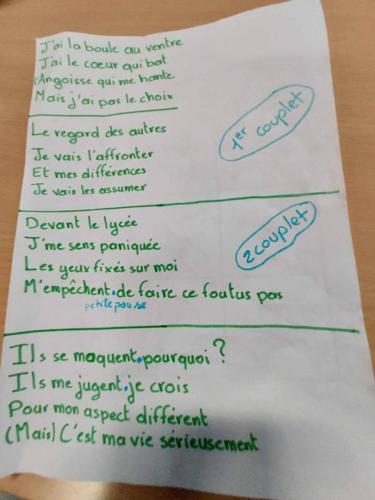 J'ai la boule au ventre
J'ai le cœur qui bat
Angoisse qui me hante
Mais j'ai pas le choix
1er couplet
Le regard des autres
Je vais l'affronter
Et mes différences
Je vais les assumer
Devant le lycée
J'me sens paniquée
2 couplet
Les yeux fixés sur moi
M'empêchent.de faire ce foutus pas
petite pause
Ils se moquent.pourquoi ?
Ils me jugent.je crois
Pour mon aspect différent
(Mais) C'est ma vie sérieusement